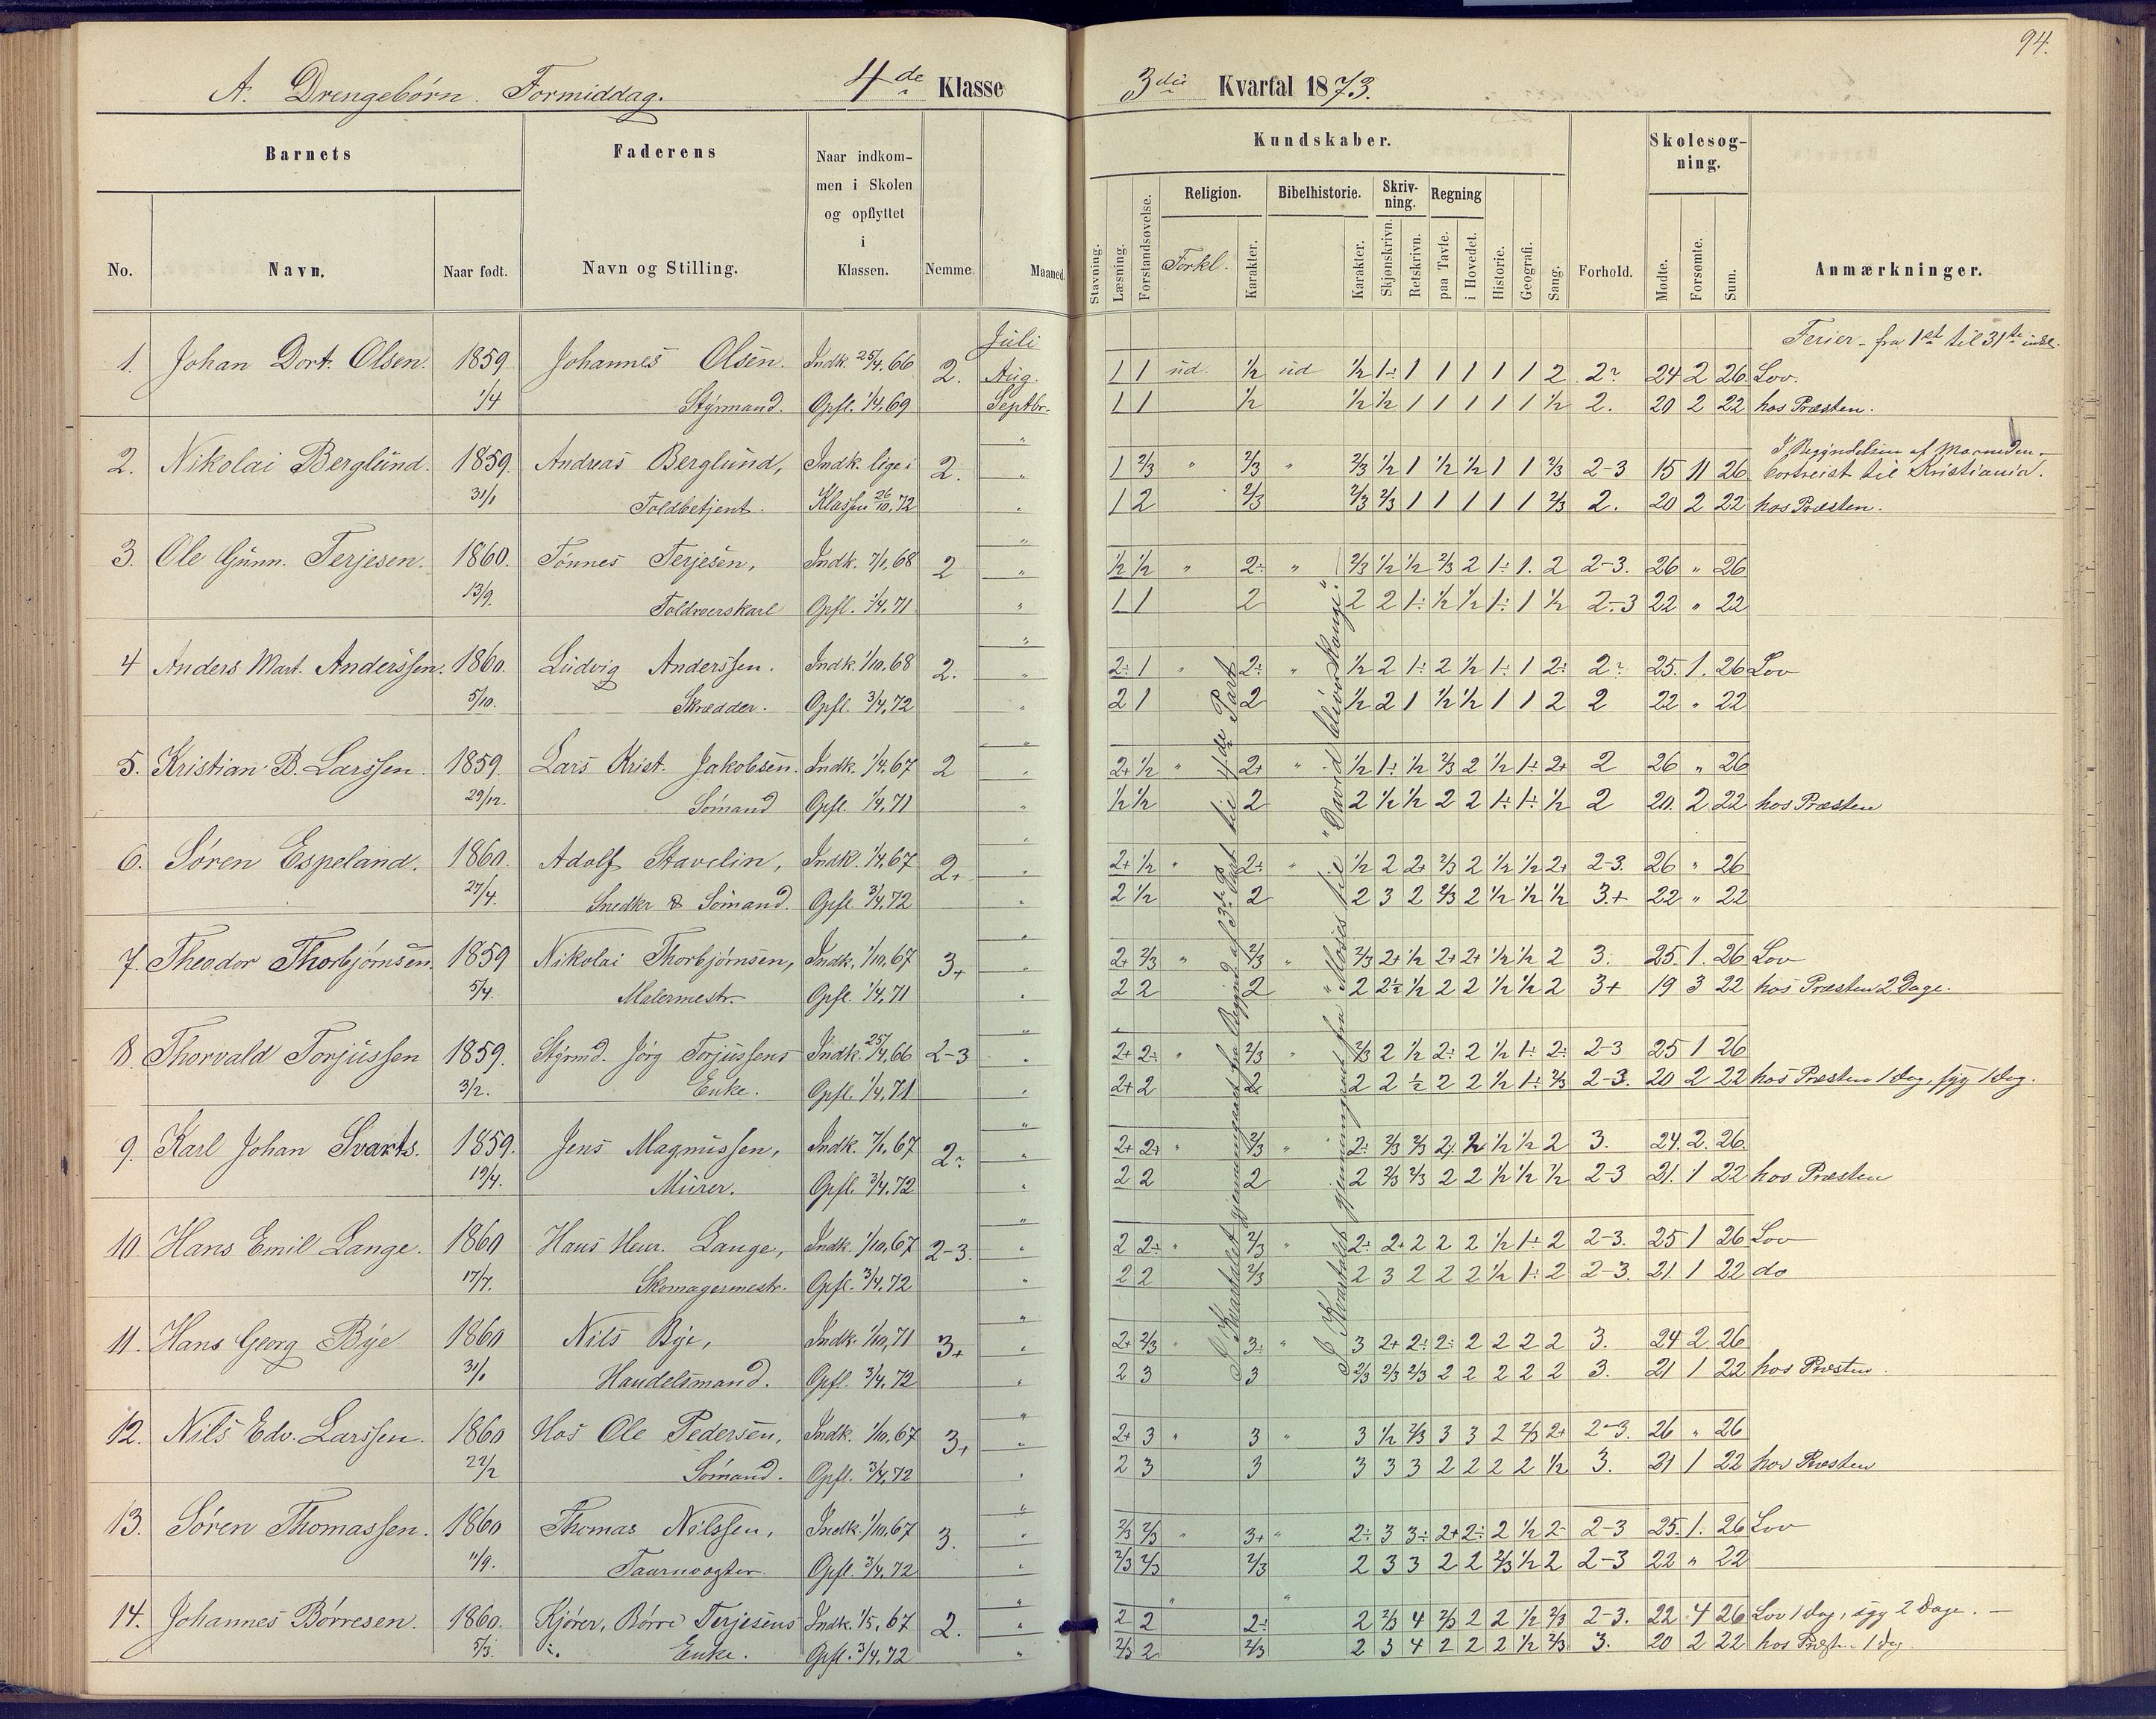 94.
A. Drengebørn. Formiddag. 4de Klasse 3die Kvartal 1873.
Barnets Faderens Naar indkommen i Skolen og opflyttet i Klassen. Nemme. Maaned. Kundskaber. Forhold. Skolesøgning. Anmærkninger.
No. Navn. Naar født. Navn og Stilling.
Stavning. Læsning. Forstandsøvelse. Religion. Forkl. Karakter. Bibelhistorie. Karakter. Skrivning. Skjønskrivn. Retskrivn. Regning paa Tavle. i Hovedet. Historie. Geografi. Sang. Mødte. Forsømte. Sum.
Juli Ferier - fra 1ste til 31te inkl.
1. Johan Dort. Olsen. 1859 Johannes Olsen. Indk. 25/4. 66 2. Aug. 1 1 ud. 1/2 ud 1/2 1÷ 1 1 1 1 1 2 2? 24 2 26 Lov.
1/4 Styrmand. Opfl. 1/4. 69 Septbr. 1 1 1/2 1/2 1/2 1 1 1 1 1 1/2 2. 20 2 22 hos Præsten.
2. Nikolai Berglund. 1859. Andreas Berglund, Indk. lige i 2. " 1 2/3 " 2/3 " 2/3 1/2 1 1/2 1/2 1 1 2/3 2-3 15 11 26 I Begyndelsen af Maaneden bortreist til Kristiania.
31/1 Toldbetjent. Klassen 26/10. 72 " 1 2 2/3 2/3 2/3 1 1 1 1 1 2/3 2. 20 2 22 hos Præsten.
3. Ole Gunn. Terjesen. 1860. Tønnes Terjesen, Indk. 7/1. 68 2 " 1/2 1/2 " 2÷ " 2/3 1/2 1/2 2/3 2 1÷ 1. 2 2-3. 26 " 26
13/9. Toldroerskarl Opfl. 1/4. 71 " 1 1 2 2 2 1÷ 1/2 1/2 1÷ 1 1/2 2-3 22 " 22
4 Anders Mart. Anderssen. 1860. Ludvig Anderssen. Indk. 1/10. 68 2. " 2÷ 1 " 2÷ " 1/2 2 1÷ 2 1/2 1÷ 1 2÷ 2? 25. 1. 26 Lov
5/10. Skrædder. Opfl. 3/4. 72 " 2 1 2 1/2 2 1 1/2 1/2 1 1 2 2 22 " 22
5. Kristian B. Larssen. 1859. Lars Krist. Jakobsen. Indk. 1/4. 67 2 " 2+ 1/2 " 2+ " 1/2 1÷ 1/2 2/3 2 1/2 1÷ 2+ 2 26 " 26
29/12. Sømand Opfl. 1/4. 71 " 1/2 1/2 2 2 1/2 1/2 2 2 1÷ 1÷ 1/2 2 20. 2 22 hos Præsten
6. Søren Espeland. 1860. Adolf Stavelin, Indk. 1/4. 67 2+ " 2+ 1/2 " 2÷ " 1/2 2 2+ 2/3 2 1/2 1/2 2+ 2-3. 26 " 26
27/4. Snedkr & Sømand. Opfl. 3/4. 72 " 2 1/2 2 2 3 2 2/3 2 1/2 1/2 1/2 3.+ 22 " 22
7. Theodor Thorbjørnsen. 1859 Nikolai Thorbjørnsen, Indk. 1/10. 67 3+ " 2+ 2/3 " 2/3 " 2/3 2+ 1/2 2+ 2+ 1/2 1/2 2 3. 25. 1. 26 Lov
5/4. Malermestr. Opfl. 1/4. 71 " 2 2 2 2 2 1/2 1/2 2 2 1/2 1/2 2 3+ 19 3 22 hos Præsten 2 Dage.
8. Thorvald Torjussen 1859. Styrmd. Jørg Torjussens Indk. 25/4. 66 2-3 " 2+ 2÷ " 2/3 " 2/3 2 1/2 2÷ 2 1/2 1÷ 2÷ 2-3 25 1 26
3/2. Enke. Opfl. 1/4. 71 " 2+ 2 2 2 2 1/2 2 2 1/2 1÷ 2/3 2-3. 20 2 22 hos Præsten 1 dag, syg 1 dag.
9. Karl Johan Svarts. 1859. Jens Magnussen, Indk. 7/1. 67 2? " 2+ 2+ " 2/3 " 2÷ 2/3 2/3 2 2 1/2 1/2 2 3. 24. 2. 26.
19/4. Murer. Opfl. 3/4. 72 " 2 2 2 2 2/3 2/3 2 2 1/2 1/2 1/2 2-3 21. 1 22 hos Præsten
10. Hans Emil Lange. 1860 Hans Henr. Lange, Indk. 1/10. 67 2-3. " 2 2÷ " 2/3 " 2÷ 2+ 2 2 2 1/2 1÷ 2 2-3. 25 1 26 Lov
17/7. Skomagermestr. Opfl. 3/4. 72 " 2 2 2/3 2 3 2 2 2 1/2 1÷ 2 2-3. 21. 1 22 do
11. Hans Georg Bye 1860 Nils Bye, Indk. 1/10. 71 3+ " 2+ 2/3 " 3÷ " 3 2+ 2÷ 2÷ 2 2 2 2 3. 24 2 26
Handelsmand. Opfl. 3/4. 72 " 2 3 3 2/3 2/3 2/3 2 2 2 2 2 3. 21 1 22 hos Præsten
12. Nils Edv. Larssen. 1860 Hos Ole Pedersen, Indk. 1/10. 67 3+ " 2+ 3 " 3 " 3 1/2 2/3 3 3 2 2/3 2+ 2-3. 26 " 26
22/2 Sømand. Opfl. 3/4. 72 " 2 3 3 3 3 3 2 2 2 2 1/2 3. 21 1 22 hos Præsten
13. Søren Thomassen. 1860 Thomas Nilssen, Indk. 1/10. 67 3. " 2/3 2/3 " 3+ " 2÷ 3 3÷ 2+ 2÷ 2 1/2 2 2-3 25. 1. 26 Lov
11/9. Taarnvogter. Opfl. 3/4. 72 " 2/3 2/3 2/3 2 3 3 2 2 2/3 1/2 2 2-3 22 " 22
14. Johannes Børresen. 1860. Kjører, Børre Terjesens Indk. 1/5. 67 2. " 2 2 " 2÷ " 2 2/3 4 2/3 2 2 1/2 2/3 2-3. 22 4 26 Lov 1 dag, syg 2 Dage.
5/3. Enke. Opfl. 3/4. 72 " 2/3 2 2/3 2 3 4 2 2 2 1/2 2/3 3. 20 2 22 hos Præsten 1 dag
I Kvartalet gjennemgaaet fra Begynd. af 3de Part til 4de Part
I Kvartalet gjennemgaaet fra "Moses" til "David bliver Konge".